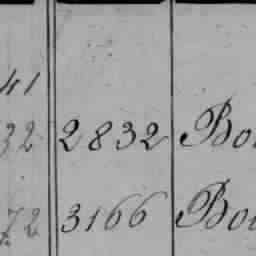 41
32 2832 Bo
72 3166 Bou